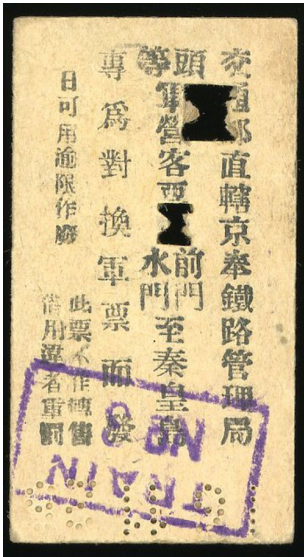 交通部直轄京奉鐵路管理局
頭等軍營客票
前門
水門
至秦皇島
專為對換軍票而發
日可用逾限作廢
此票不作轉售
借用違者重罰
TRAIN
No 3